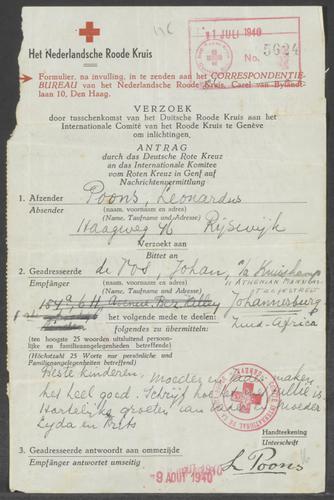 11 JULI 1940
No. 5624
Het Nederlandsche Roode Kruis
Formulier, na invulling, in te zenden aan het CORRESPONDENTIE-
BUREAU van het Nederlandsche Roode Kruis, Carel van Bylandt-
laan 10, Den Haag.
VERZOEK
door tusschenkomst van het Duitsche Roode Kruis aan het
Internationale Comité van het Roode Kruis te Genève
om inlichtingen.
ANTRAG
durch das Deutsche Rote Kreuz
an das Internationale Komitee
vom Roten Kreuz in Genf auf
Nachrichtenvermittlung
1. Afzender Poons, Leonardus
Absender (naam, voornaam en adres)
(Name, Taufname und Adresse)
Haagweg 46 Rijswijk
Verzoekt aan
Bittet an
2. Geadresseerde de Vos, Johan, c/o Kruiskamp
Empfänger (naam, voornaam en adres)
(Name, Taufname und Adresse)
11 ATHENIAN MANNIONS
Avenue Johannesburg
het volgende mede te deelen:
Zuid-Africa
folgendes zu übermitteln:
(ten hoogste 25 woorden uitsluitend persoon-
lijke en familieaangelegenheden betreffende)
(Höchstzahl 25 Worte nur persönliche und
Familienangelegenheiten betreffend)
Liefste kinderen. Moeder en vader maken
het heel goed. Schrijf hoe het jullie is
Hartelijke groeten van vader en moeder
Lyda en Frits
COMITÉ INTERNATIONAL DE LA CROIX-ROUGE
Handteekening
Unterschrift
3. Geadresseerde antwoordt aan ommezijde
Empfänger antwortet umseitig
L Poons
9 AOUT 1940